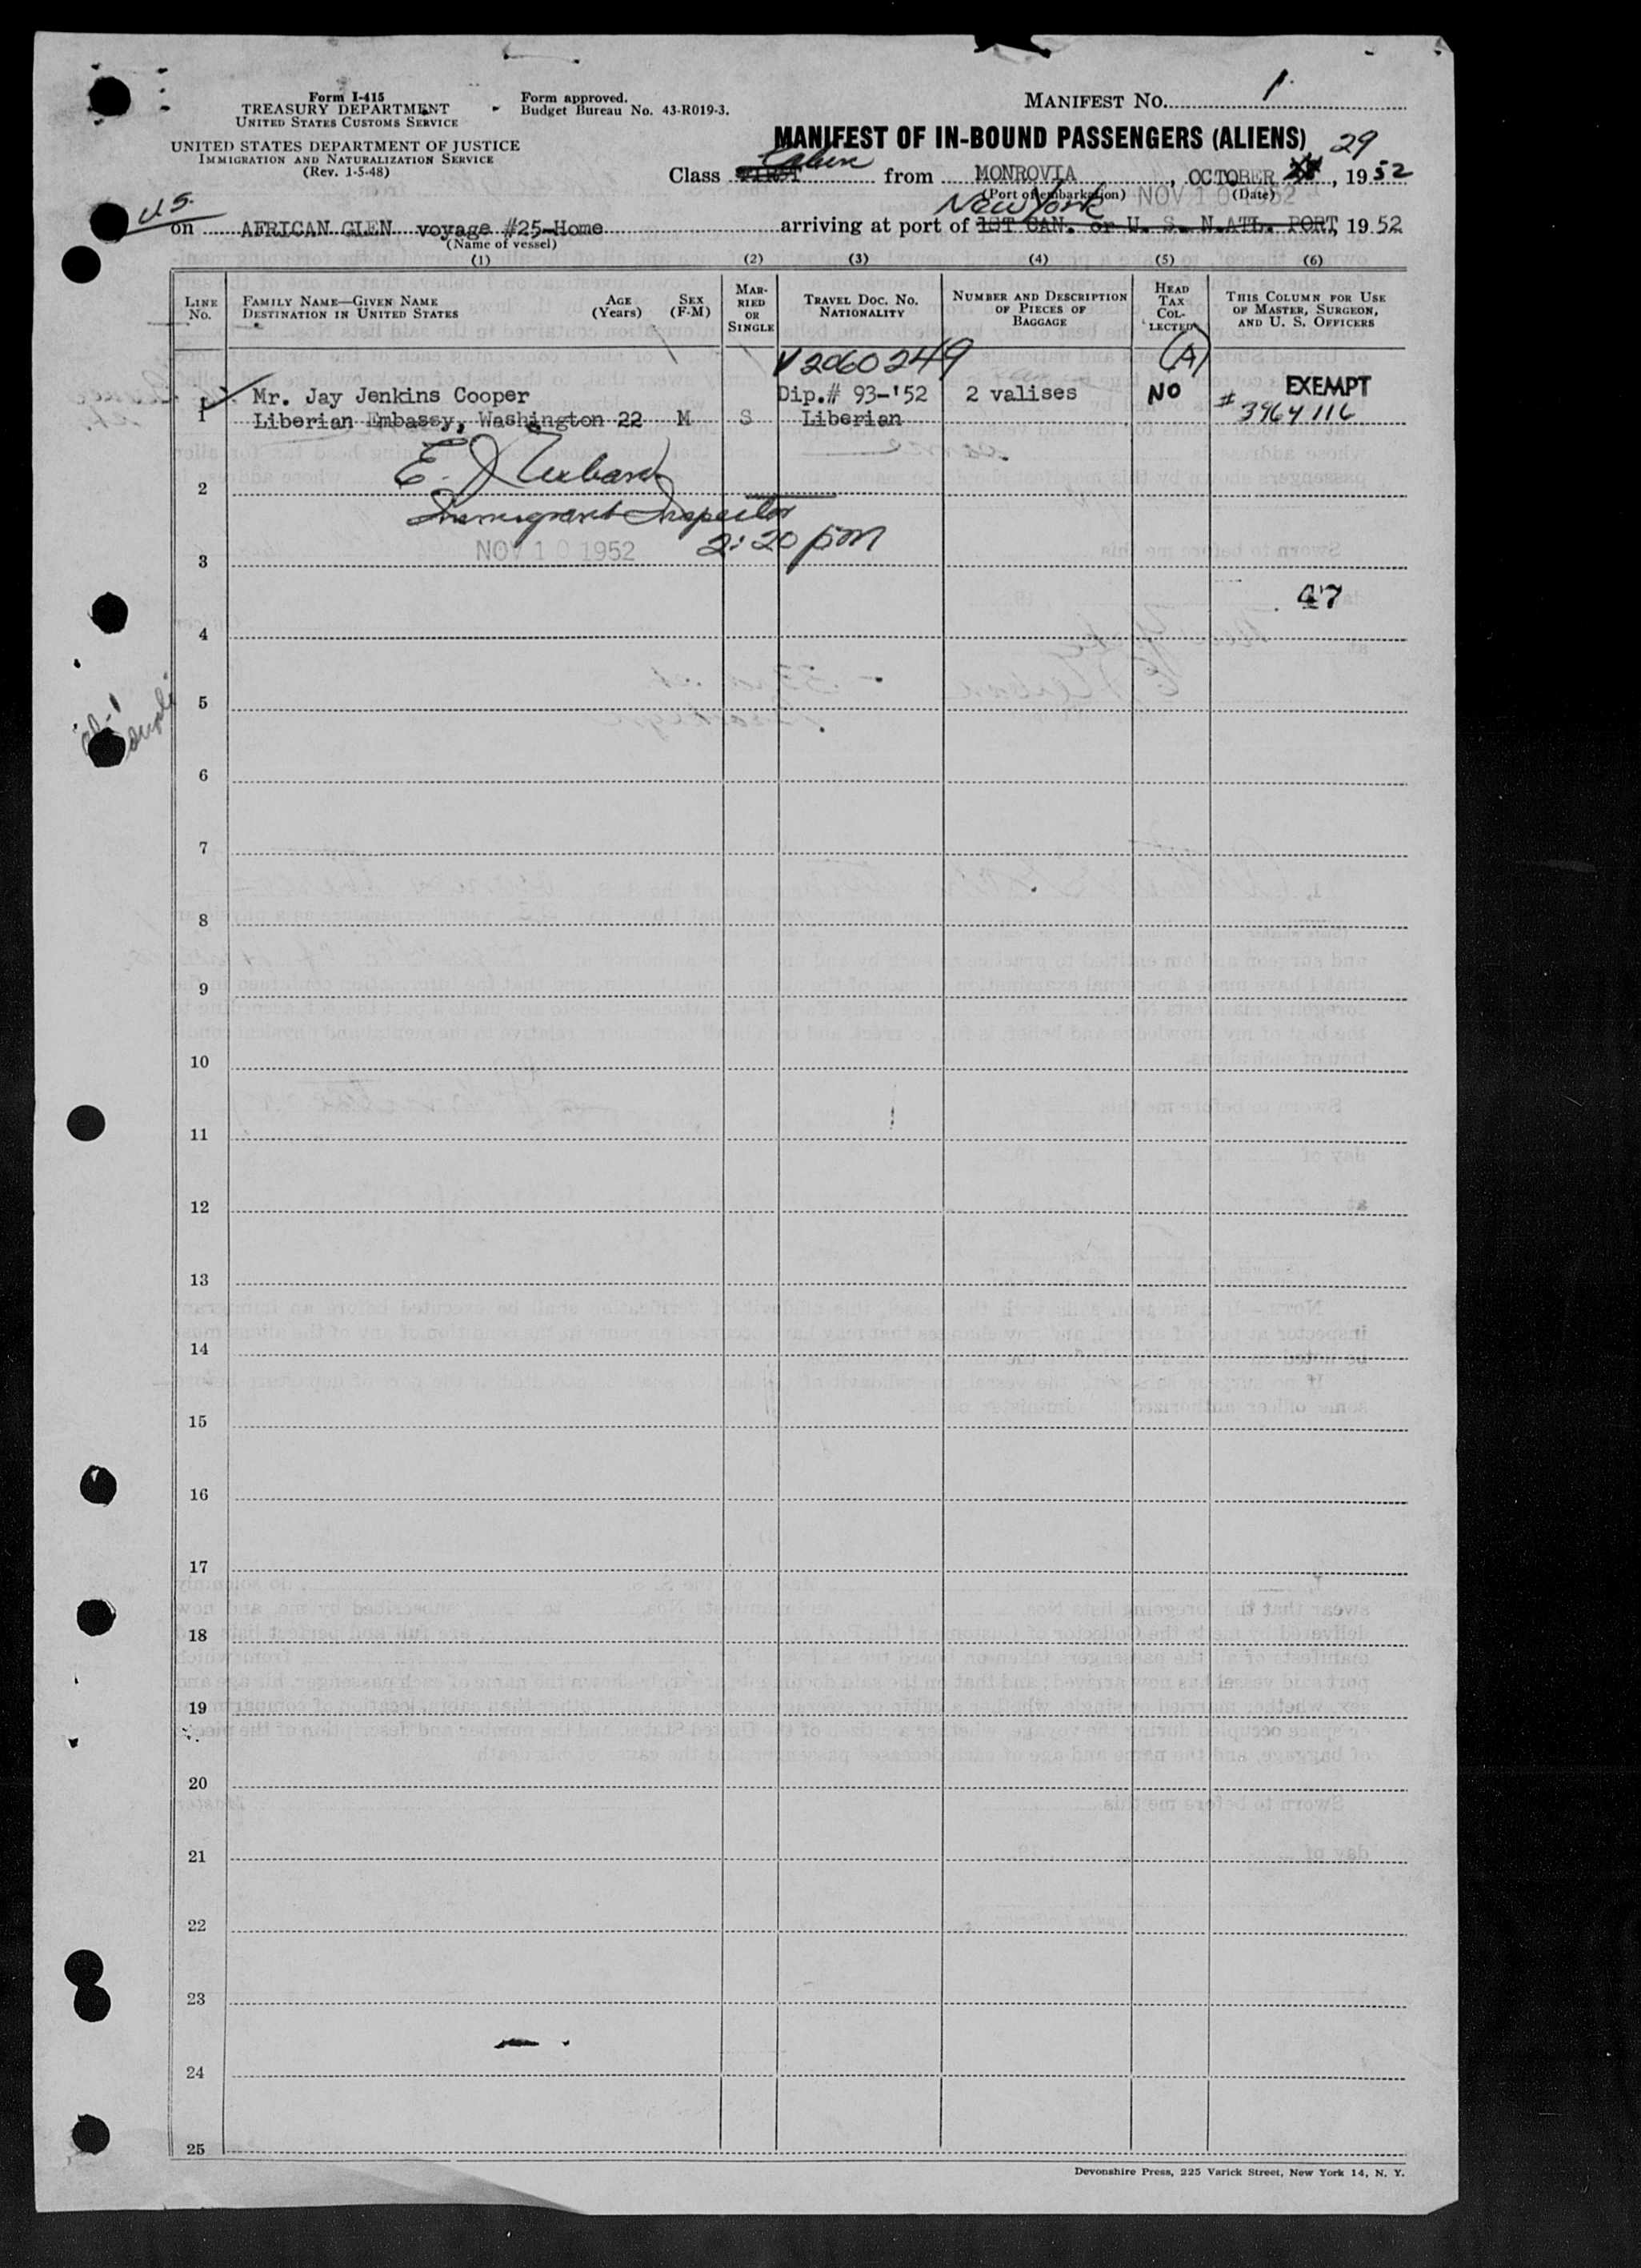 Form I-415
TREASURY DEPARTMENT
UNITED STATES CUSTOMS SERVICE
UNITED STATES DEPARTMENT OF JUSTICE
IMMIGRATION AND NATURALIZATION SERVICE
(Rev. 1-5-48)
Form approved.
Budget Bureau No. 43-R019-3.
MANIFEST NO. 1
MANIFEST OF IN-BOUND PASSENGERS (ALIENS)
29
Cabin
Class FIRST from MONROVIA, OCTOBER, 1952
(Port of embarkation) (Date)
NOV 10 1952
U.S.
New York
on AFRICAN GLEN voyage #25-Home arriving at port of 1ST CAN. or U. S. N.ATL. PORT, 1952
(Name of vessel)
(1) (2) (3) (4) (5) (6)
LINE NO.
FAMILY NAME—GIVEN NAME
DESTINATION IN UNITED STATES
AGE (Years)
SEX (F-M)
MARRIED OR SINGLE
TRAVEL DOC. NO.
NATIONALITY
NUMBER AND DESCRIPTION OF PIECES OF BAGGAGE
HEAD TAX COLLECTED
THIS COLUMN FOR USE OF MASTER, SURGEON, AND U. S. OFFICERS
V2060249 (A)
Mr. Jay Jenkins Cooper Dip.# 93-'52 2 valises NO EXEMPT
1 Liberian Embassy, Washington 22 M S Liberian #3964116
2
Immigrant Inspector
2:20 pm
NOV 10 1952
3
47
4
5
6
7
8
9
10
11
12
13
14
15
16
17
18
19
20
21
22
23
24
25
Devonshire Press, 225 Varick Street, New York 14, N. Y.